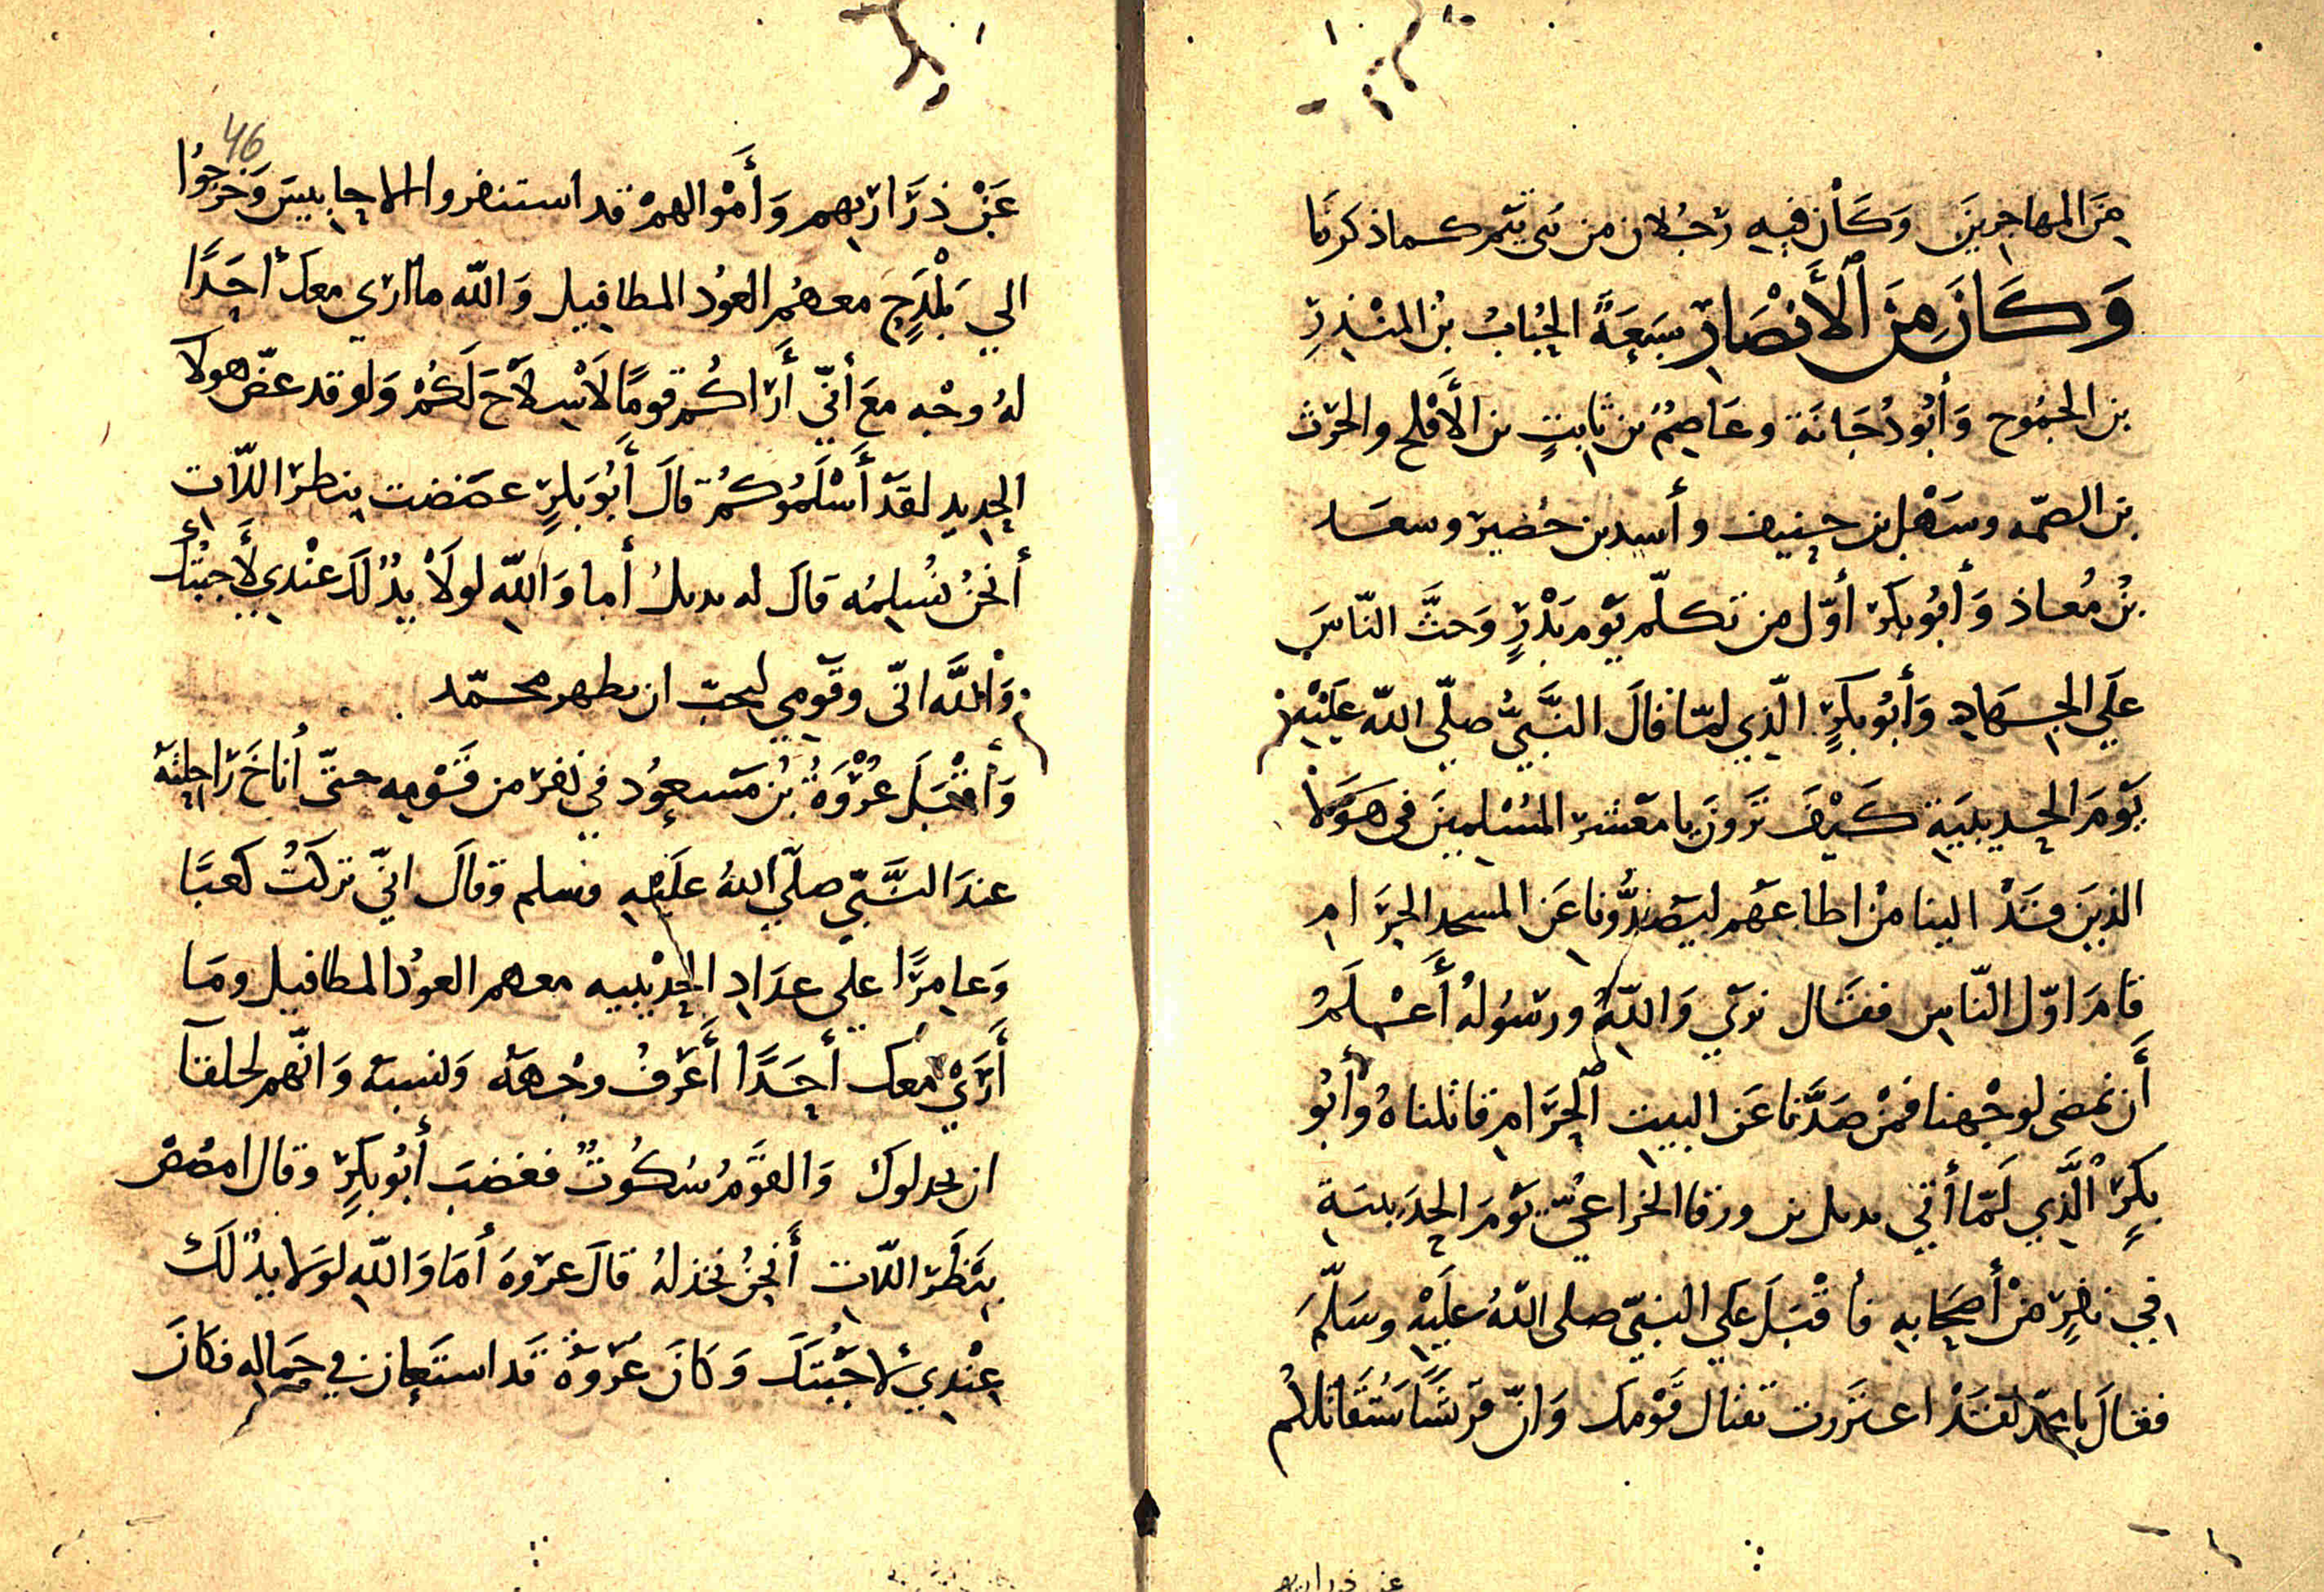 مِنَ المهاجرينَ وَكَانَ فيهِ رَجُلان من بَني تيم كما ذكرنا
وَكَانَ مِنَ الْأَنْصَارِ سَبعَةٌ الحُبابُ بْنُ المنْذِرِ
بن الجمُوح وَأبُو دُجَانَة وعَاصِمُ بن ثابتٍ بن الأَقْلح والحرث
بن الصمّه وسَهْل بن حنيف وأسيد بن حُضير وسعَد
بْنُ مُعاذ وَأبُو بكرٍ أوّل من تكلّم يَوْم بَدْرٍ وَحثَّ النّاسَ
علَي الجهَادِ وَأَبُو بكرٍ الّذي لمّا قالَ النَّبيُّ صلّى اللّه عليْهِ
يَوْمَ الحديبيَةِ كَيْفَ تَرَوْنَ يا معْشرَ المُسْلمينَ في هؤَلَا
الذينَ قَدْ الينا مَنْ اطاعَهُم ليَصُدُّونا عَن المسجد الحرَام
قامَ اوّل النّاس فقَال نَرَي وَاللّهُ ورسُولُهُ أَعْلَمُ
أَن نمضى لوجْهنا فمَنْ صَدَّنا عَن البيت الْحَرَامِ قاتلناهُ وأبُو
بكرٍ الَّذي لَمّا أتي بديل بن ورقا الخزاعيّ يَوْمَ الحُدَيبيَةِ
في نفرٍ مَنْ أصحَابهِ فأقْبَلَ علي النبيّ صلى اللّهُ عليْهِ وسَلّمَ
فقَالَ يا محمّد لقَدْ اعتَررت بقتال قَوْمك وَانّ قرَيْشًا سَتُقَاتلكُم
46
عَنْ ذرَارِيهم وَأمْوالهمْ قد استنفروا الاحابيسَ وَخَرجُوا
الي بَلْدَحٍ معهُمُ العوْذ المطافيل وَاللّه ما ارَي معك أحَدًا
لهُ وجْه معَ أنّي أَرَاكُم قومًا لَا سِلَاحَ لَكُمْ وَلو قد عضّ هولا
الحديد لقدْ أَسْلَمُوكُم قالَ أَبُو بكرٍ عضضت ببظر اللّات
أنحْنُ نُسْلِمُه قالَ له بديلُ أما وَاللّه لولَا يدٌ لَكَ عنْدي لَأجبتُك
وَاللّه انّي وقَومي ليحبّ ان يظهر محمّد
وَأقْبَلَ عُرْوَةُ بْنُ مَسعوُد في نَفر من قَوْمه حتّى أناخَ رَاحِلتَهُ
عندَ النَّبيّ صلّي اللّهُ عليْهِ وسلم وقالَ انّي تركَتُ كعبًا
وَعامرًا علي عدَاد الحُديْبيه معهم العوْذ المطافيل ومَا
أَرَي معك أحَدًا أَعْرفُ وجْههَ وَنسبهَ وَانّهم لحلقآ
ان يخدلوك وَالقَومُ سُكُوتٌ فغضبَ أبُو بكرٍ وقال امصُصْ
بِبَظْر اللّات أَنحْنُ نخذلهُ قالَ عروهَ أمَا وَاللّهِ لوَلا يدٌ لَك
عنْدي لاجَبْتكَ وَكانَ عُرْوَة قَد استعَان في حِمَاله فكانَ
عن ذراريهم